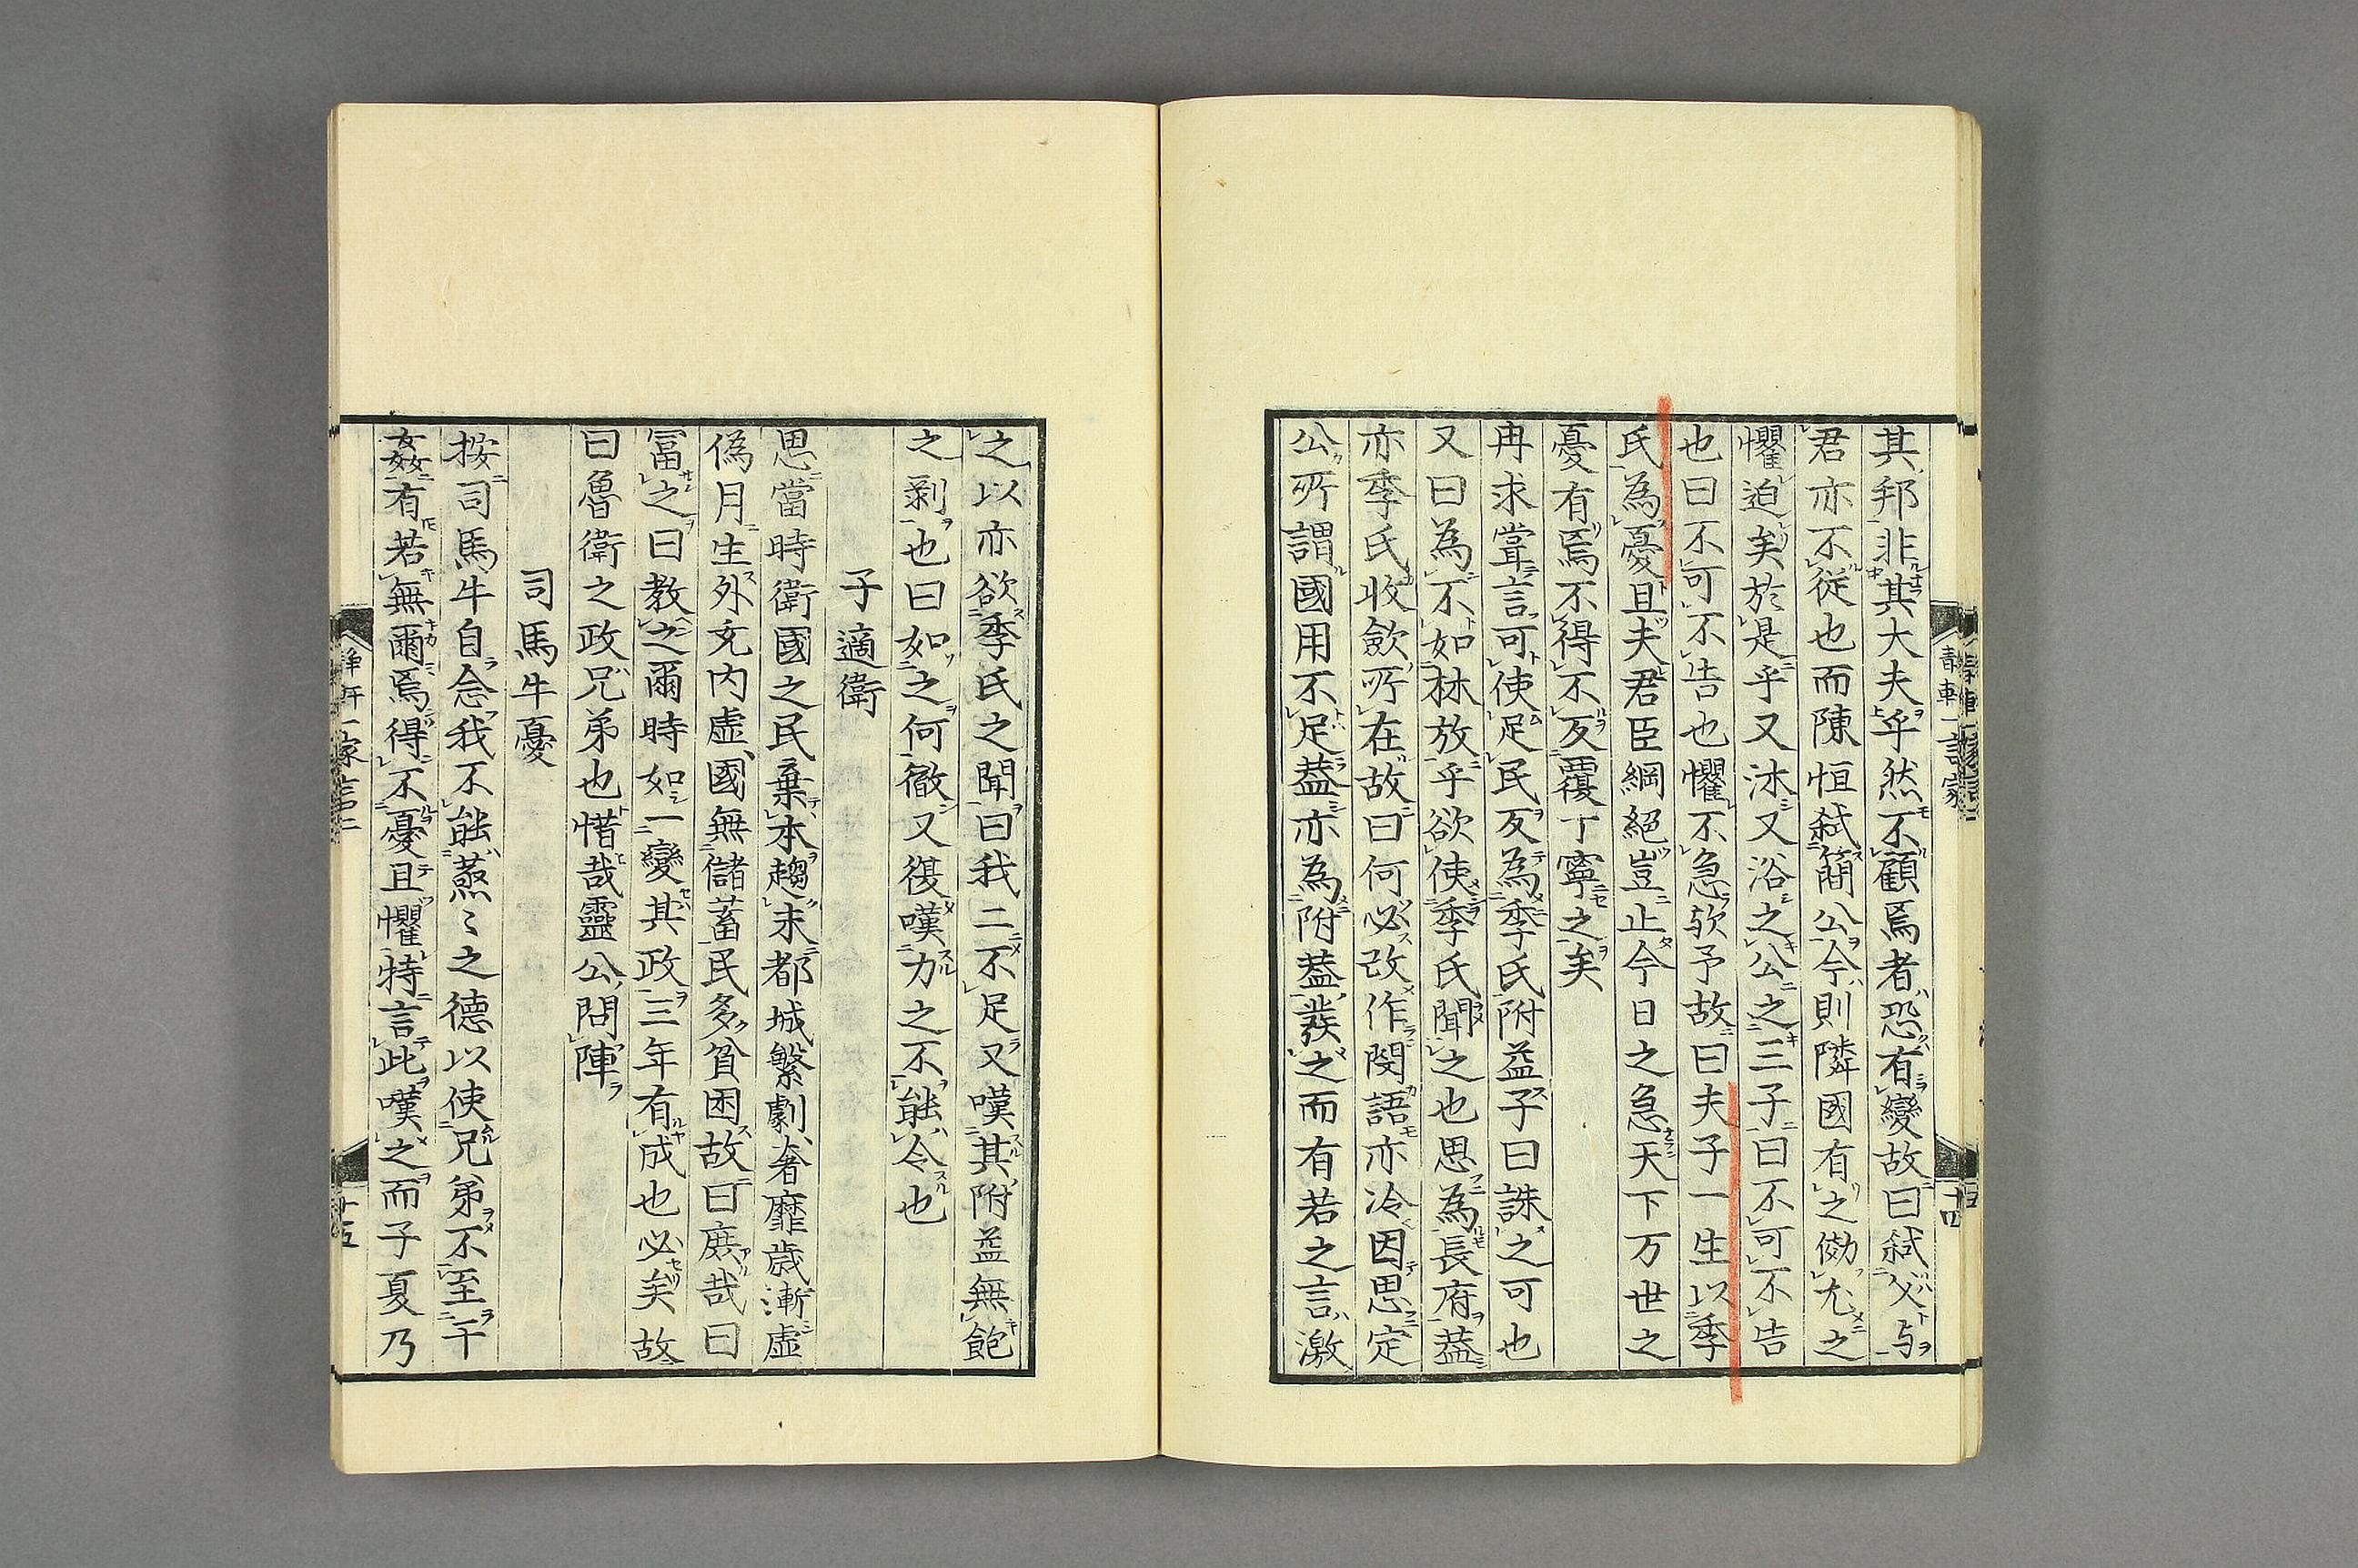 其邦非其大夫乎然不顧焉者恐有變故曰弑父与
君亦不從也而陳恒弑簡公今則隣國有之傚尤之
懼迫矣於是乎又沐又浴之公之三子曰不可不告
也曰不可不告也懼不急欤予故曰夫子一生以季
氏為憂且夫君臣綱絕豈止今日之急天下万世之
憂有焉不得不反覆丁寧之矣
冉求嘗言可使足民反為季氏附益子曰誅之可也
又曰為不如林放乎欲使季氏聞之也思為長府蓋
亦季氏收歛所在故曰何必改作閔語亦冷因思定
公所謂國用不足蓋亦為附益發之而有若之言激
之以亦欲季氏之聞曰我二不足又嘆其附益無飽
之剥也曰如之何徹又復嘆力之不能令也
子適衛
思當時衛國之民棄本趨末都城繁劇奢靡歳漸虛
偽月生外充内虛國無儲蓄民多貧困故曰庶哉曰
冨之曰教之爾時如一變其政三年有成也必矣故
曰魯衛之政兄弟也惜哉靈公問陣
司馬牛憂
按司馬牛自念我不能烝〻之德以使兄弟不至干
姦有若無爾焉得不憂且懼特言此嘆之而子夏乃
十四
十五